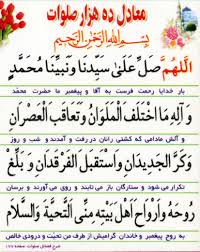 معادل ده هزار صلوات
بِسْمِ اللهِ الرَّحْمٰنِ الرَّحِيمِ
اَللّٰهُمَّ صَلِّ عَلىٰ سَيِّدِنَا وَنَبِيِّنَا مُحَمَّدٍ
بار خدایا رحمت فرست به آقا و پیغمبر ما حضرت محمّد
وَآلِهِ مَا اخْتَلَفَ الْمَلَوَانِ وَتَعَاقَبَ الْعَصْرَانِ
و آلش مادامی که کشتی رانان در رفت و آمدند و شب و روز
وَكَرَّ الْجَدِيدَانِ وَاسْتَقْبَلَ الْفَرْقَدَانِ وَبَلِّغْ
تکرار می شود و ستارگان باز می تابند و روی می آورند و برسان
رُوحَهُ وَاَرْوَاحَ اَهْلِ بَيْتِهِ مِنِّي التَّحِيَّةَ وَالسَّلَامَ
به روح پیغمبر و خاندان گرامیش از طرف من تحیّت و درودی خالص
شرح فضائل صلوات صفحه